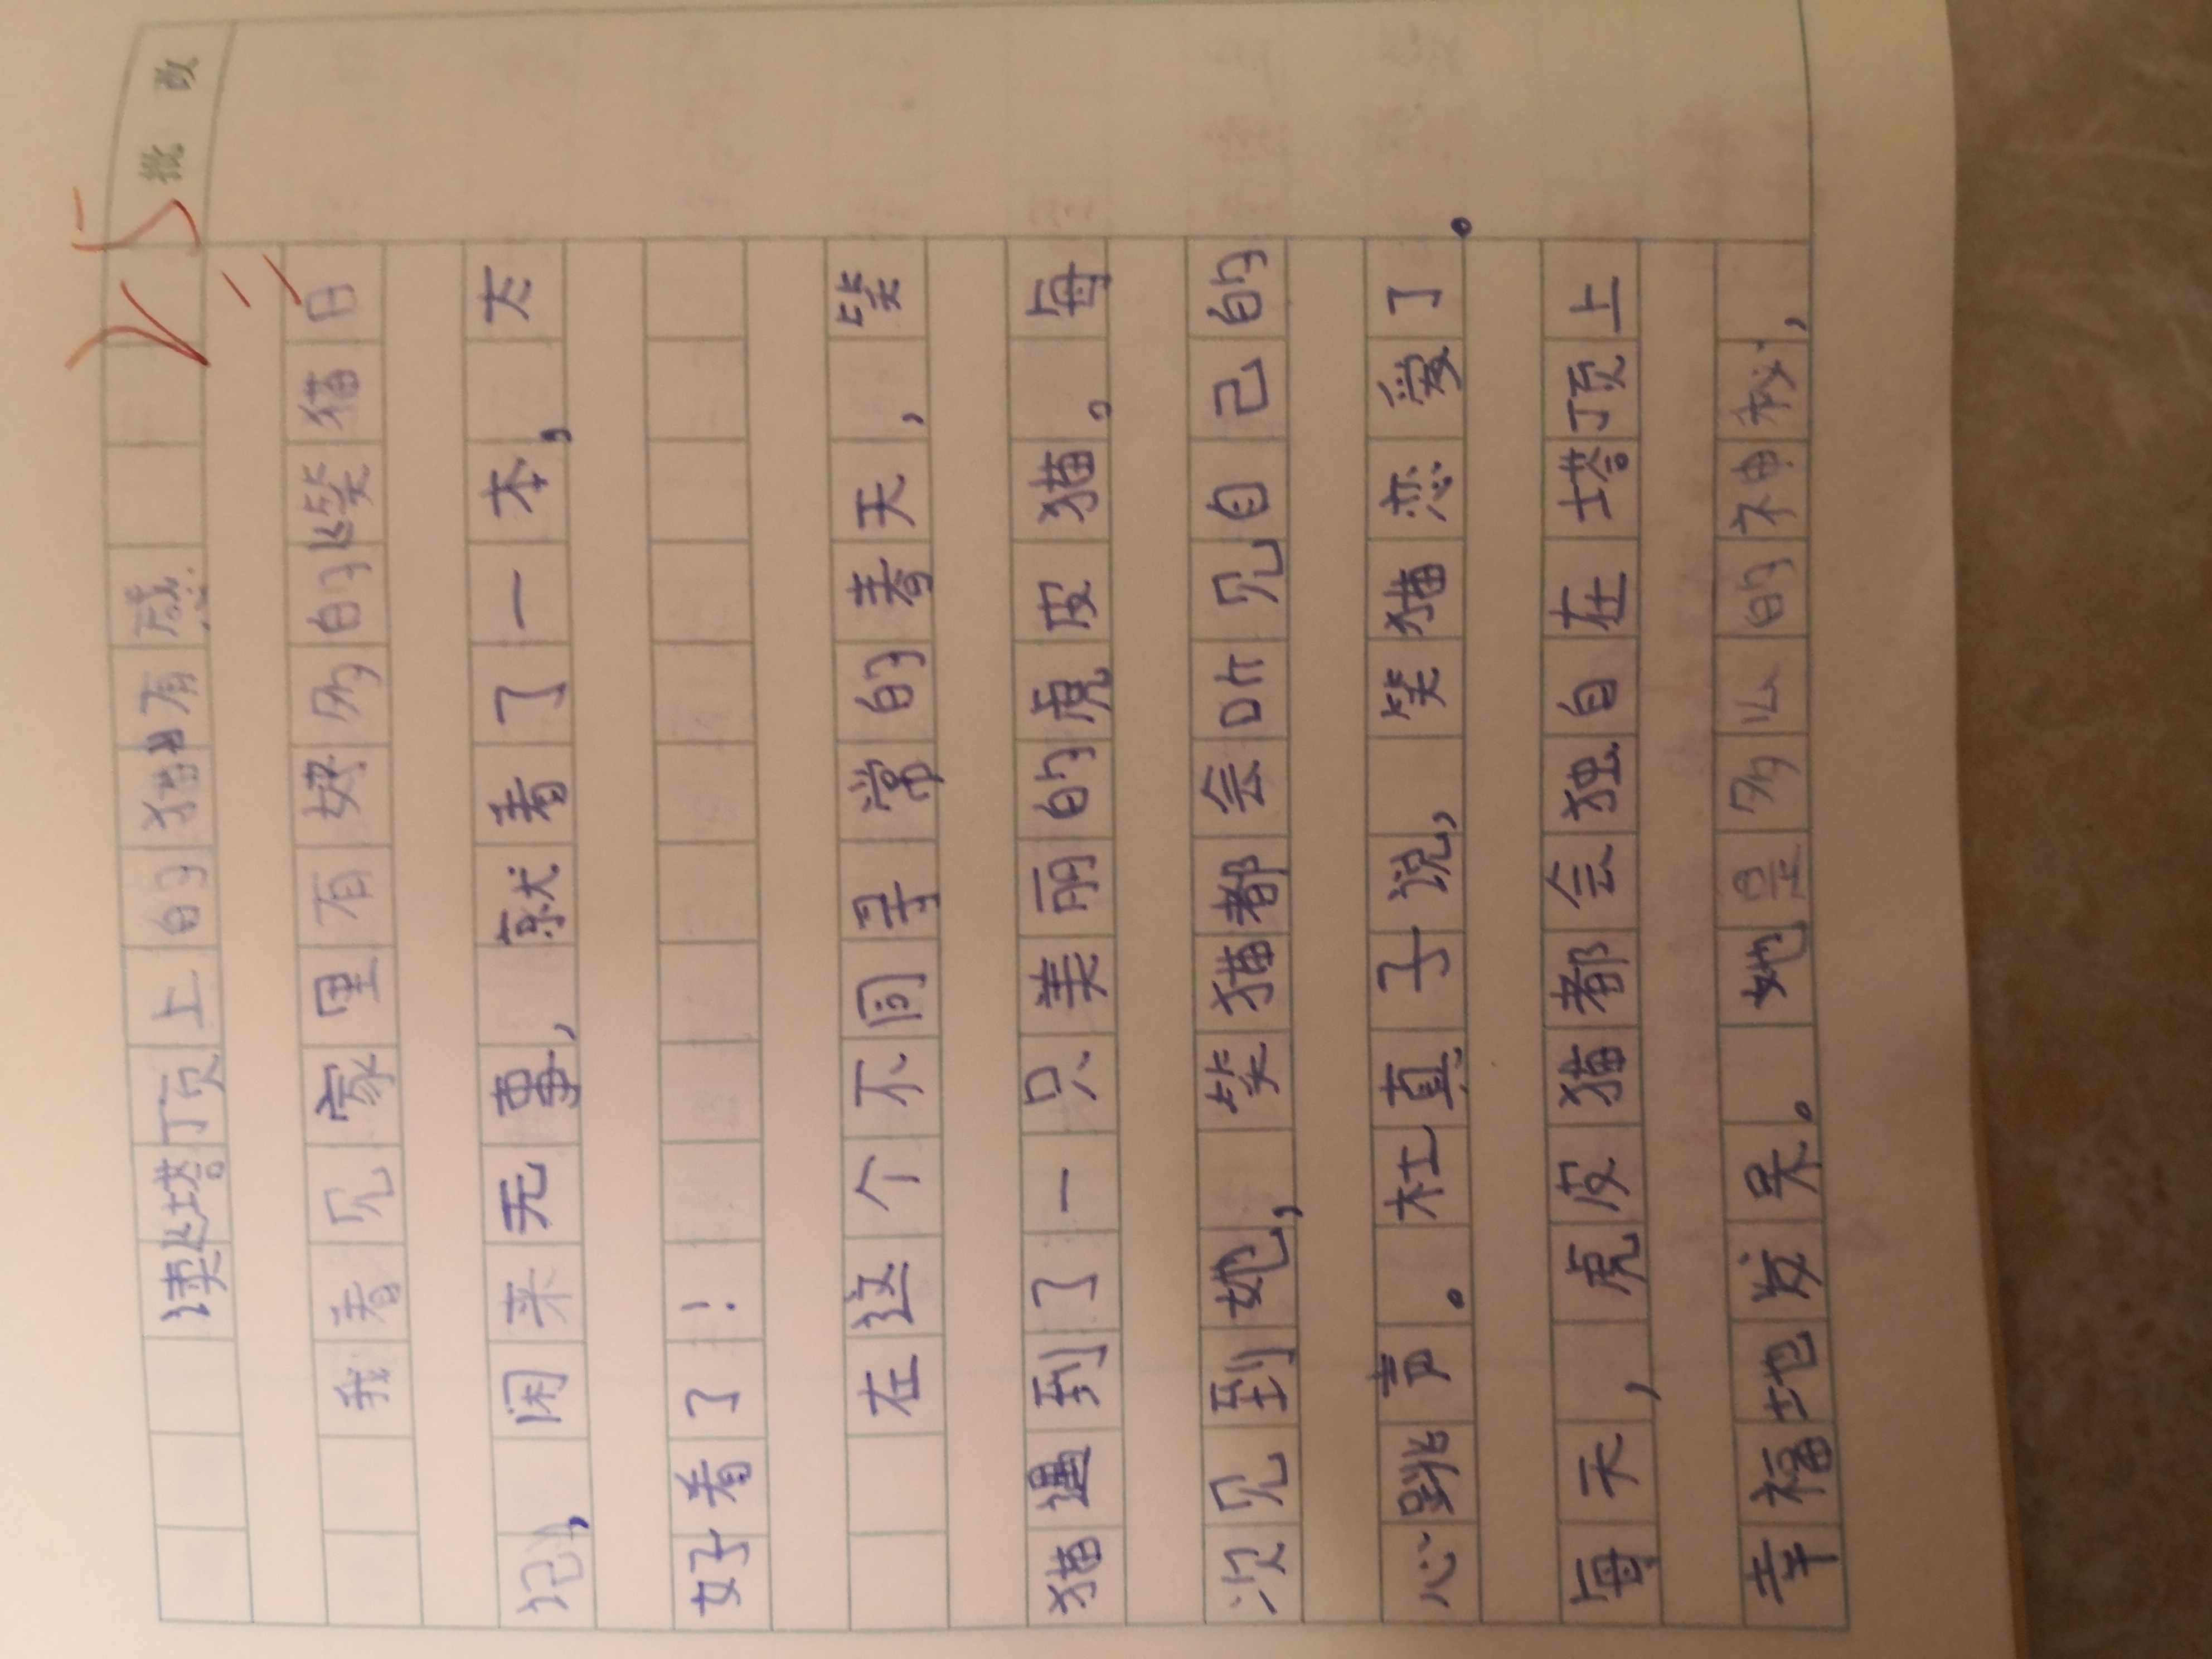 批 改
读《塔顶上的猫》有感
我看见家里有好多的《笑猫日
记》，闲来无事，就看了一本，太
好看了！
在这个不同寻常的春天，笑
猫遇到了一只美丽的虎皮猫。每
次见到她，笑猫都会听见自己的
心跳声。杜真子说，笑猫恋爱了。
每天，虎皮猫都会独自在塔顶上
幸福地发呆。她是多么的神秘，